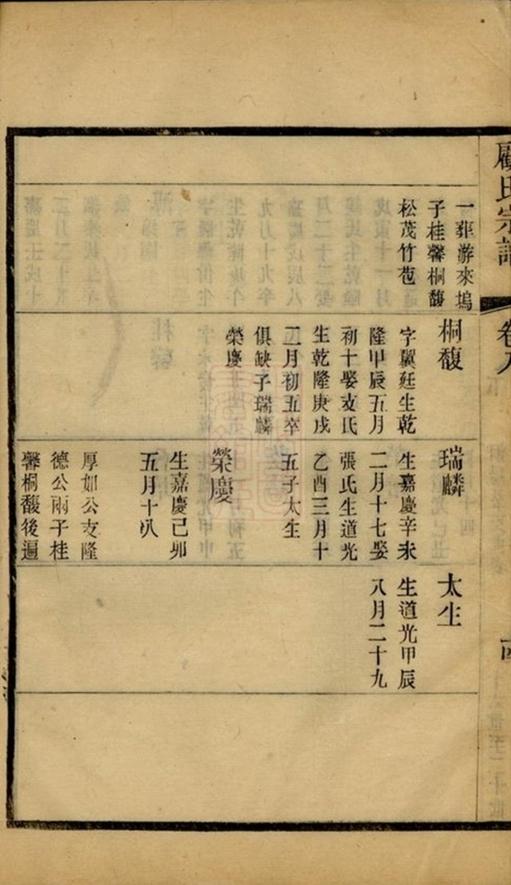 顧氏宗譜
卷八
一葬游來塢
子桂馨桐馥
松茂竹苞
桐馥
字翼廷生乾
隆甲辰五月
初十娶支氏
生乾隆庚戌
二月初五卒
俱缺子瑞麟
榮慶
瑞麟
生嘉慶辛未
二月十七娶
張氏生道光
乙酉三月十
五子太生
榮慶
生嘉慶己卯
五月十八
厚如公支隆
德公兩子桂
馨桐馥後遍
太生
生道光甲辰
八月二十九